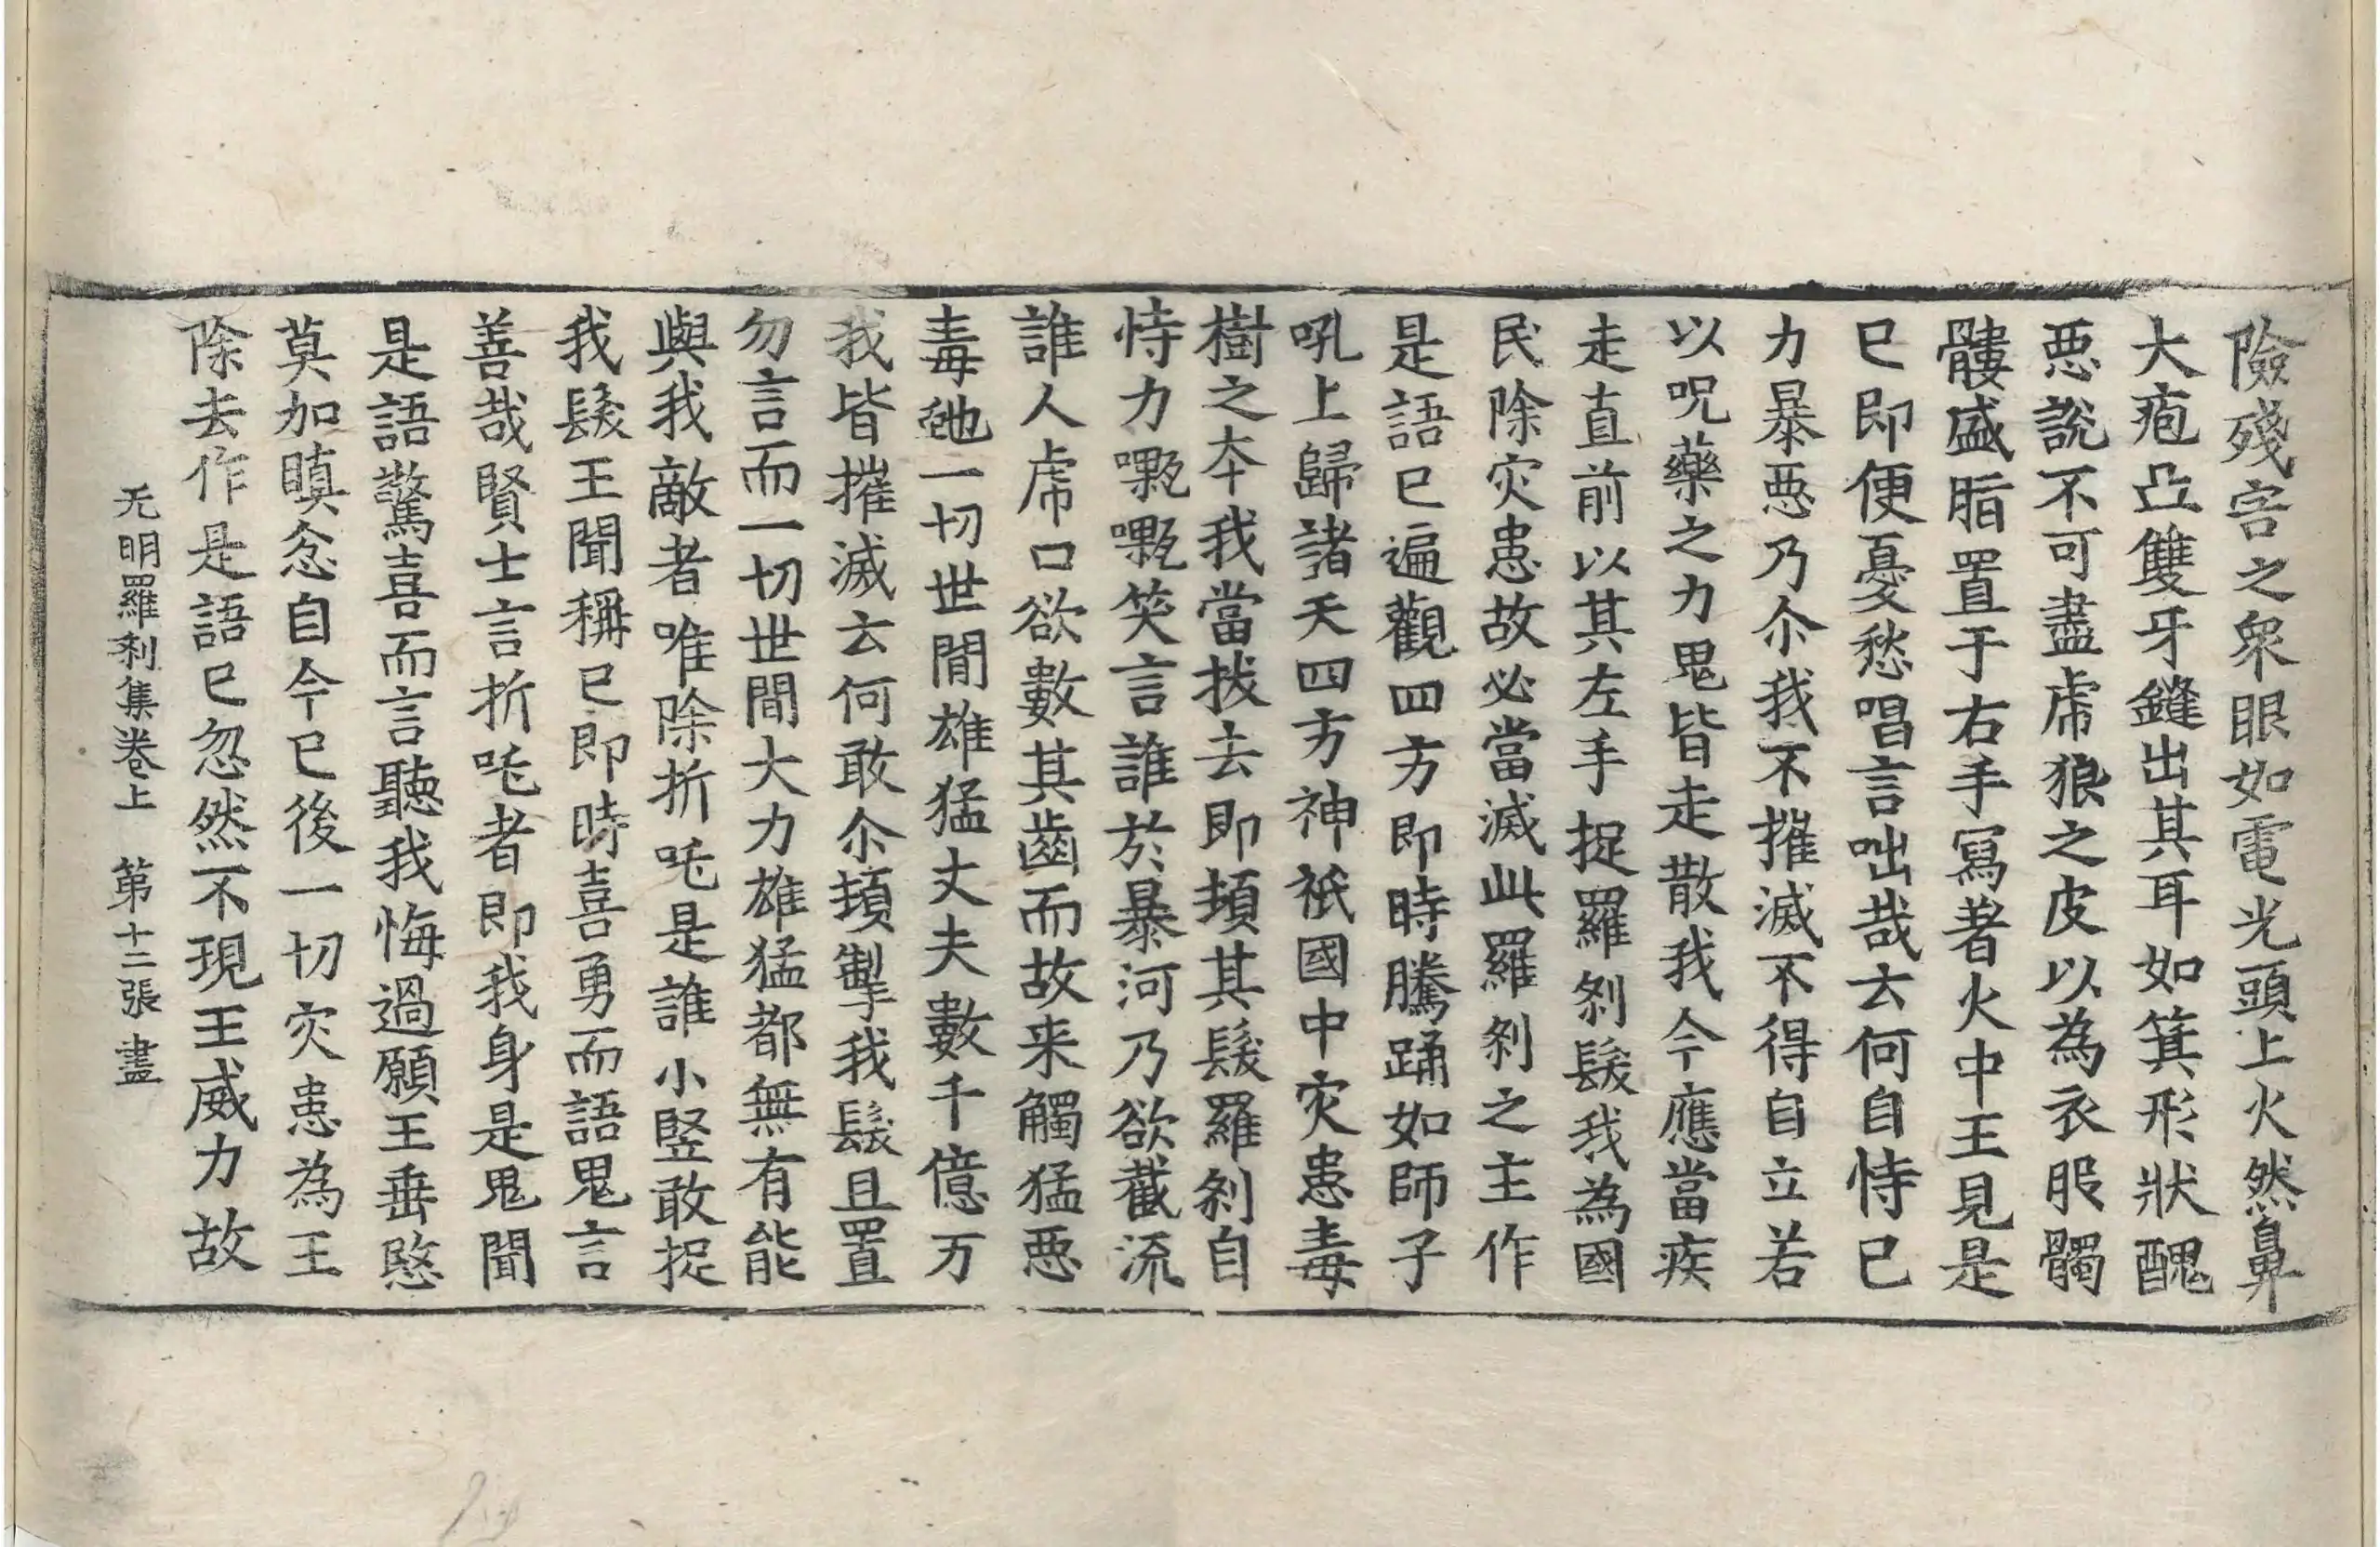 險殘害之衆眼如電光頭上火然鼻
大疱凸雙牙鏠出其耳如箕形狀醜
惡說不可盡虎狼之皮以為衣服髑
髏盛脂置于右手寫著火中王見是
已即便憂愁唱言咄哉云何自恃己
力暴惡乃尒我不摧滅不得自立若
以呪藥之力鬼皆走散我今應當疾
走直前以其左手捉羅剎髮我為國
民除灾患故必當滅此羅剎之主作
是語已遍觀四方即時騰踊如師子
吼上歸諸天四方神祇國中灾患毒
樹之本我當拔去即頓其髮羅剎自
恃力㘈㘈笑言誰於暴河乃欲截流
誰人虎口欲數其齒而故来觸猛惡
毒虵一切世間雄猛丈夫數千億万
我皆摧滅云何敢尒頓掣我髮且置
勿言而一切世間大力雄猛都無有能
與我敵者唯除折吒是誰小竪敢捉
我髮王聞稱已即時喜勇而語鬼言
善哉賢士言折吒者即我身是鬼聞
是語驚喜而言聽我悔過願王垂愍
莫加瞋忿自今已後一切灾患為王
除去作是語已忽然不現王威力故
无明羅刹集卷上　第十二張　盡